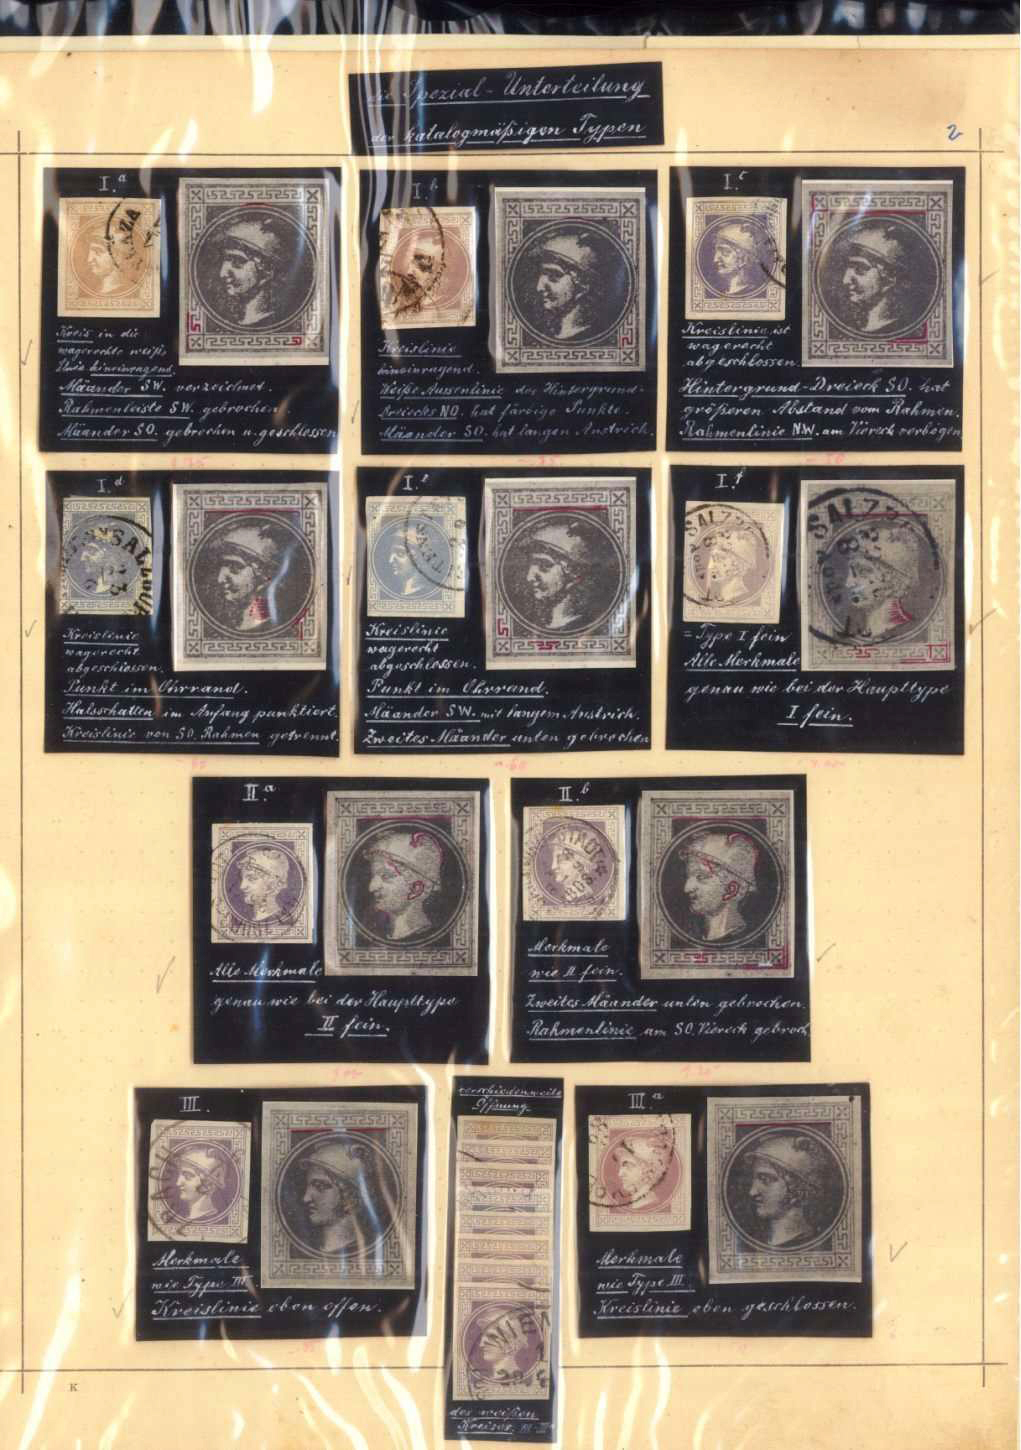 die Spezial-Unterteilung
der katalogmäßigen Typen
2
I.a
Kreis in die
wagerechte weiße
Linie hineinragend.
Mäander SW. verzeichnet.
Rahmenleiste SW. gebrochen.
Mäander SO. gebrochen u. geschlossen
I.b
Kreislinie
hineinragend.
Weiße Aussenlinie des Hintergrund-
Dreiecks NO. hat färbige Punkte.
Mäander SO. hat langen Anstrich.
I.c
Kreislinie ist
wagerecht
abgeschlossen.
Hintergrund-Dreieck SO. hat
größeren Abstand vom Rahmen.
Rahmenlinie N.W. am Viereck verbogen
I.d
Kreislinie
wagerecht
abgeschlossen.
Punkt im Ohrrand.
Halsschatten im Anfang punktiert.
Kreislinie von SO. Rahmen getrennt.
I.e
Kreislinie
wagerecht
abgeschlossen.
Punkt im Ohrrand.
Mäander SW. mit langem Anstrich.
Zweites Mäander unten gebrochen
I.f
SALZB
= Type I fein
Alle Merkmale
genau wie bei der Haupttype
I fein.
II.a
Alle Merkmale
genau wie bei der Haupttype
II fein.
II.b
Merkmale
wie II fein.
Zweites Mäander unten gebrochen.
Rahmenlinie am SO. Viereck gebroch.
III.
Merkmale
wie Type III.
Kreislinie oben offen.
verschiedenweite
Öffnung
WIEN
des weißen
Kreises
III.a
Merkmale
wie Type III.
Kreislinie oben geschlossen.
K